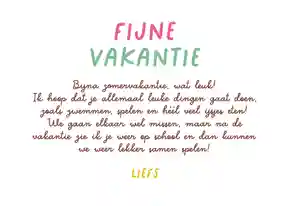 FIJNE
VAKANTIE
Bijna zomervakantie, wat leuk!
Ik hoop dat je allemaal leuke dingen gaat doen,
zoals zwemmen, spelen en héél veel ijsjes eten!
We gaan elkaar wel missen, maar na de
vakantie zie ik je weer op school en dan kunnen
we weer lekker samen spelen!
LIEFS